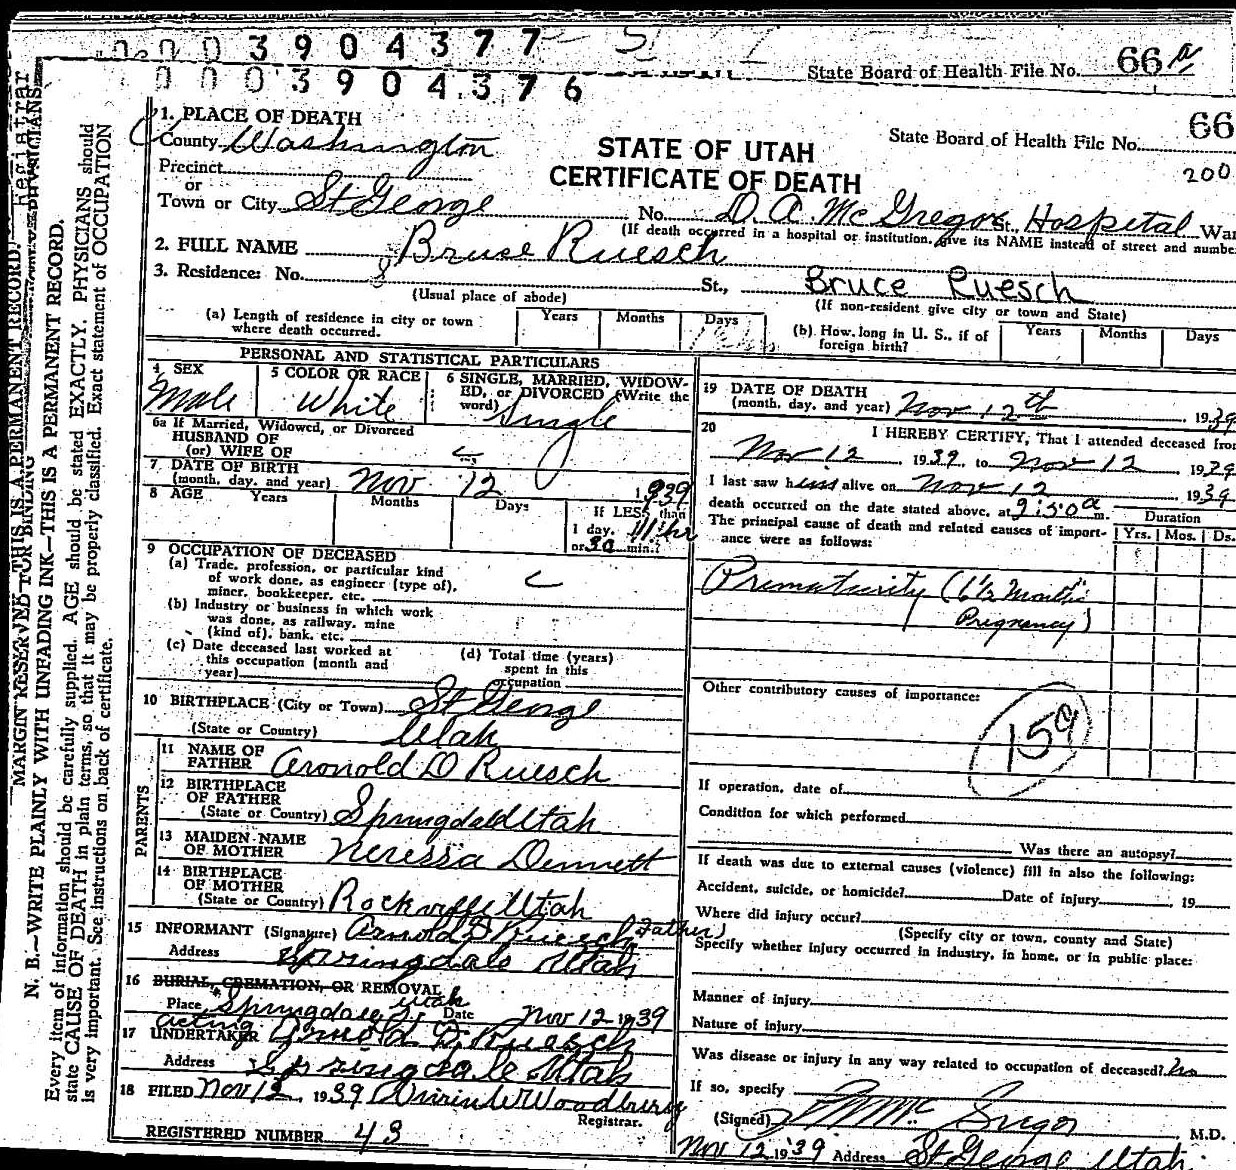 0 0 0 3 9 0 4 3 7 7
0 0 0 3 9 0 4 3 7 6
State Board of Health File No. 66a
State Board of Health File No. 66
200
1. PLACE OF DEATH
County Washington
STATE OF UTAH
CERTIFICATE OF DEATH
Precinct
or
Town or City St George No. D. A. McGregor St. Hospital War
(If death occurred in a hospital or institution, give its NAME instead of street and numbe
2. FULL NAME Bruse Ruesch
3. Residence: No. St., Bruce Ruesch
(Usual place of abode) (If non-resident give city or town and State)
(a) Length of residence in city or town where death occurred. Years Months Days
(b) How long in U. S., if of foreign birth? Years Months Days
PERSONAL AND STATISTICAL PARTICULARS
4 SEX Male
5 COLOR OR RACE White
6 SINGLE, MARRIED, WIDOW-
ED, or DIVORCED (Write the
word) Single
6a If Married, Widowed, or Divorced
HUSBAND OF
(or) WIFE OF
7 DATE OF BIRTH
(month, day, and year) Nov 12 1939
8 AGE Years Months Days If LESS than
1 day, 11 hr
or 30 min.?
9 OCCUPATION OF DECEASED
(a) Trade, profession, or particular kind
of work done, as engineer (type of),
miner, bookkeeper, etc.
(b) Industry or business in which work
was done, as railway, mine
(kind of), bank, etc.
(c) Date deceased last worked at
this occupation (month and
year)
(d) Total time (years)
spent in this
occupation
10 BIRTHPLACE (City or Town) St George
(State or Country) Utah
PARENTS
11 NAME OF
FATHER Aronold D Ruesch
12 BIRTHPLACE
OF FATHER
(State or Country) Springdale Utah
13 MAIDEN NAME
OF MOTHER Neressa Dennett
14 BIRTHPLACE
OF MOTHER
(State or Country) Rockville Utah
15 INFORMANT (Signature) Arnold D Ruesch (Father)
Address Springdale Utah
16 BURIAL, CREMATION, OR REMOVAL
Place Springdale Utah Date Nov 12 1939
acting
17 UNDERTAKER Arnold D. Ruesch
Address Springdale Utah
18 FILED Nov 12, 1939 W Woodbury
Registrar.
REGISTERED NUMBER 43
19 DATE OF DEATH
(month, day, and year) Nov 12th 1939
20 I HEREBY CERTIFY, That I attended deceased from
Nov 12, 1939, to Nov 12, 1939
I last saw h alive on Nov 12, 1939
death occurred on the date stated above, at 9:50 a m.
The principal cause of death and related causes of import-
ance were as follows:
Duration
Yrs. Mos. Ds.
Prematurity (6½ Months
Pregnancy)
Other contributory causes of importance:
159
If operation, date of
Condition for which performed
Was there an autopsy?
If death was due to external causes (violence) fill in also the following:
Accident, suicide, or homicide? Date of injury , 19
Where did injury occur?
(Specify city or town, county and State)
Specify whether injury occurred in industry, in home, or in public place:
Manner of injury
Nature of injury
Was disease or injury in any way related to occupation of deceased? no
If so, specify
(Signed) McGregor, M.D.
Nov 12 1939 Address St George Utah
MARGIN RESERVED FOR BINDING
THIS IS A PERMANENT RECORD.
Registrar
PHYSICIANS
N. B.—WRITE PLAINLY WITH UNFADING INK—THIS IS A PERMANENT RECORD.
Every item of information should be carefully supplied. AGE should be stated EXACTLY. PHYSICIANS should
state CAUSE OF DEATH in plain terms, so that it may be properly classified. Exact statement of OCCUPATION
is very important. See instructions on back of certificate.